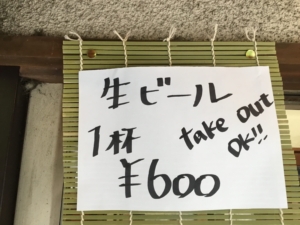 生ビール
1杯
¥600
take out
OK!!